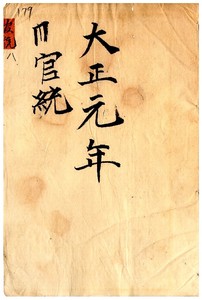 179
八
大正元年
官統